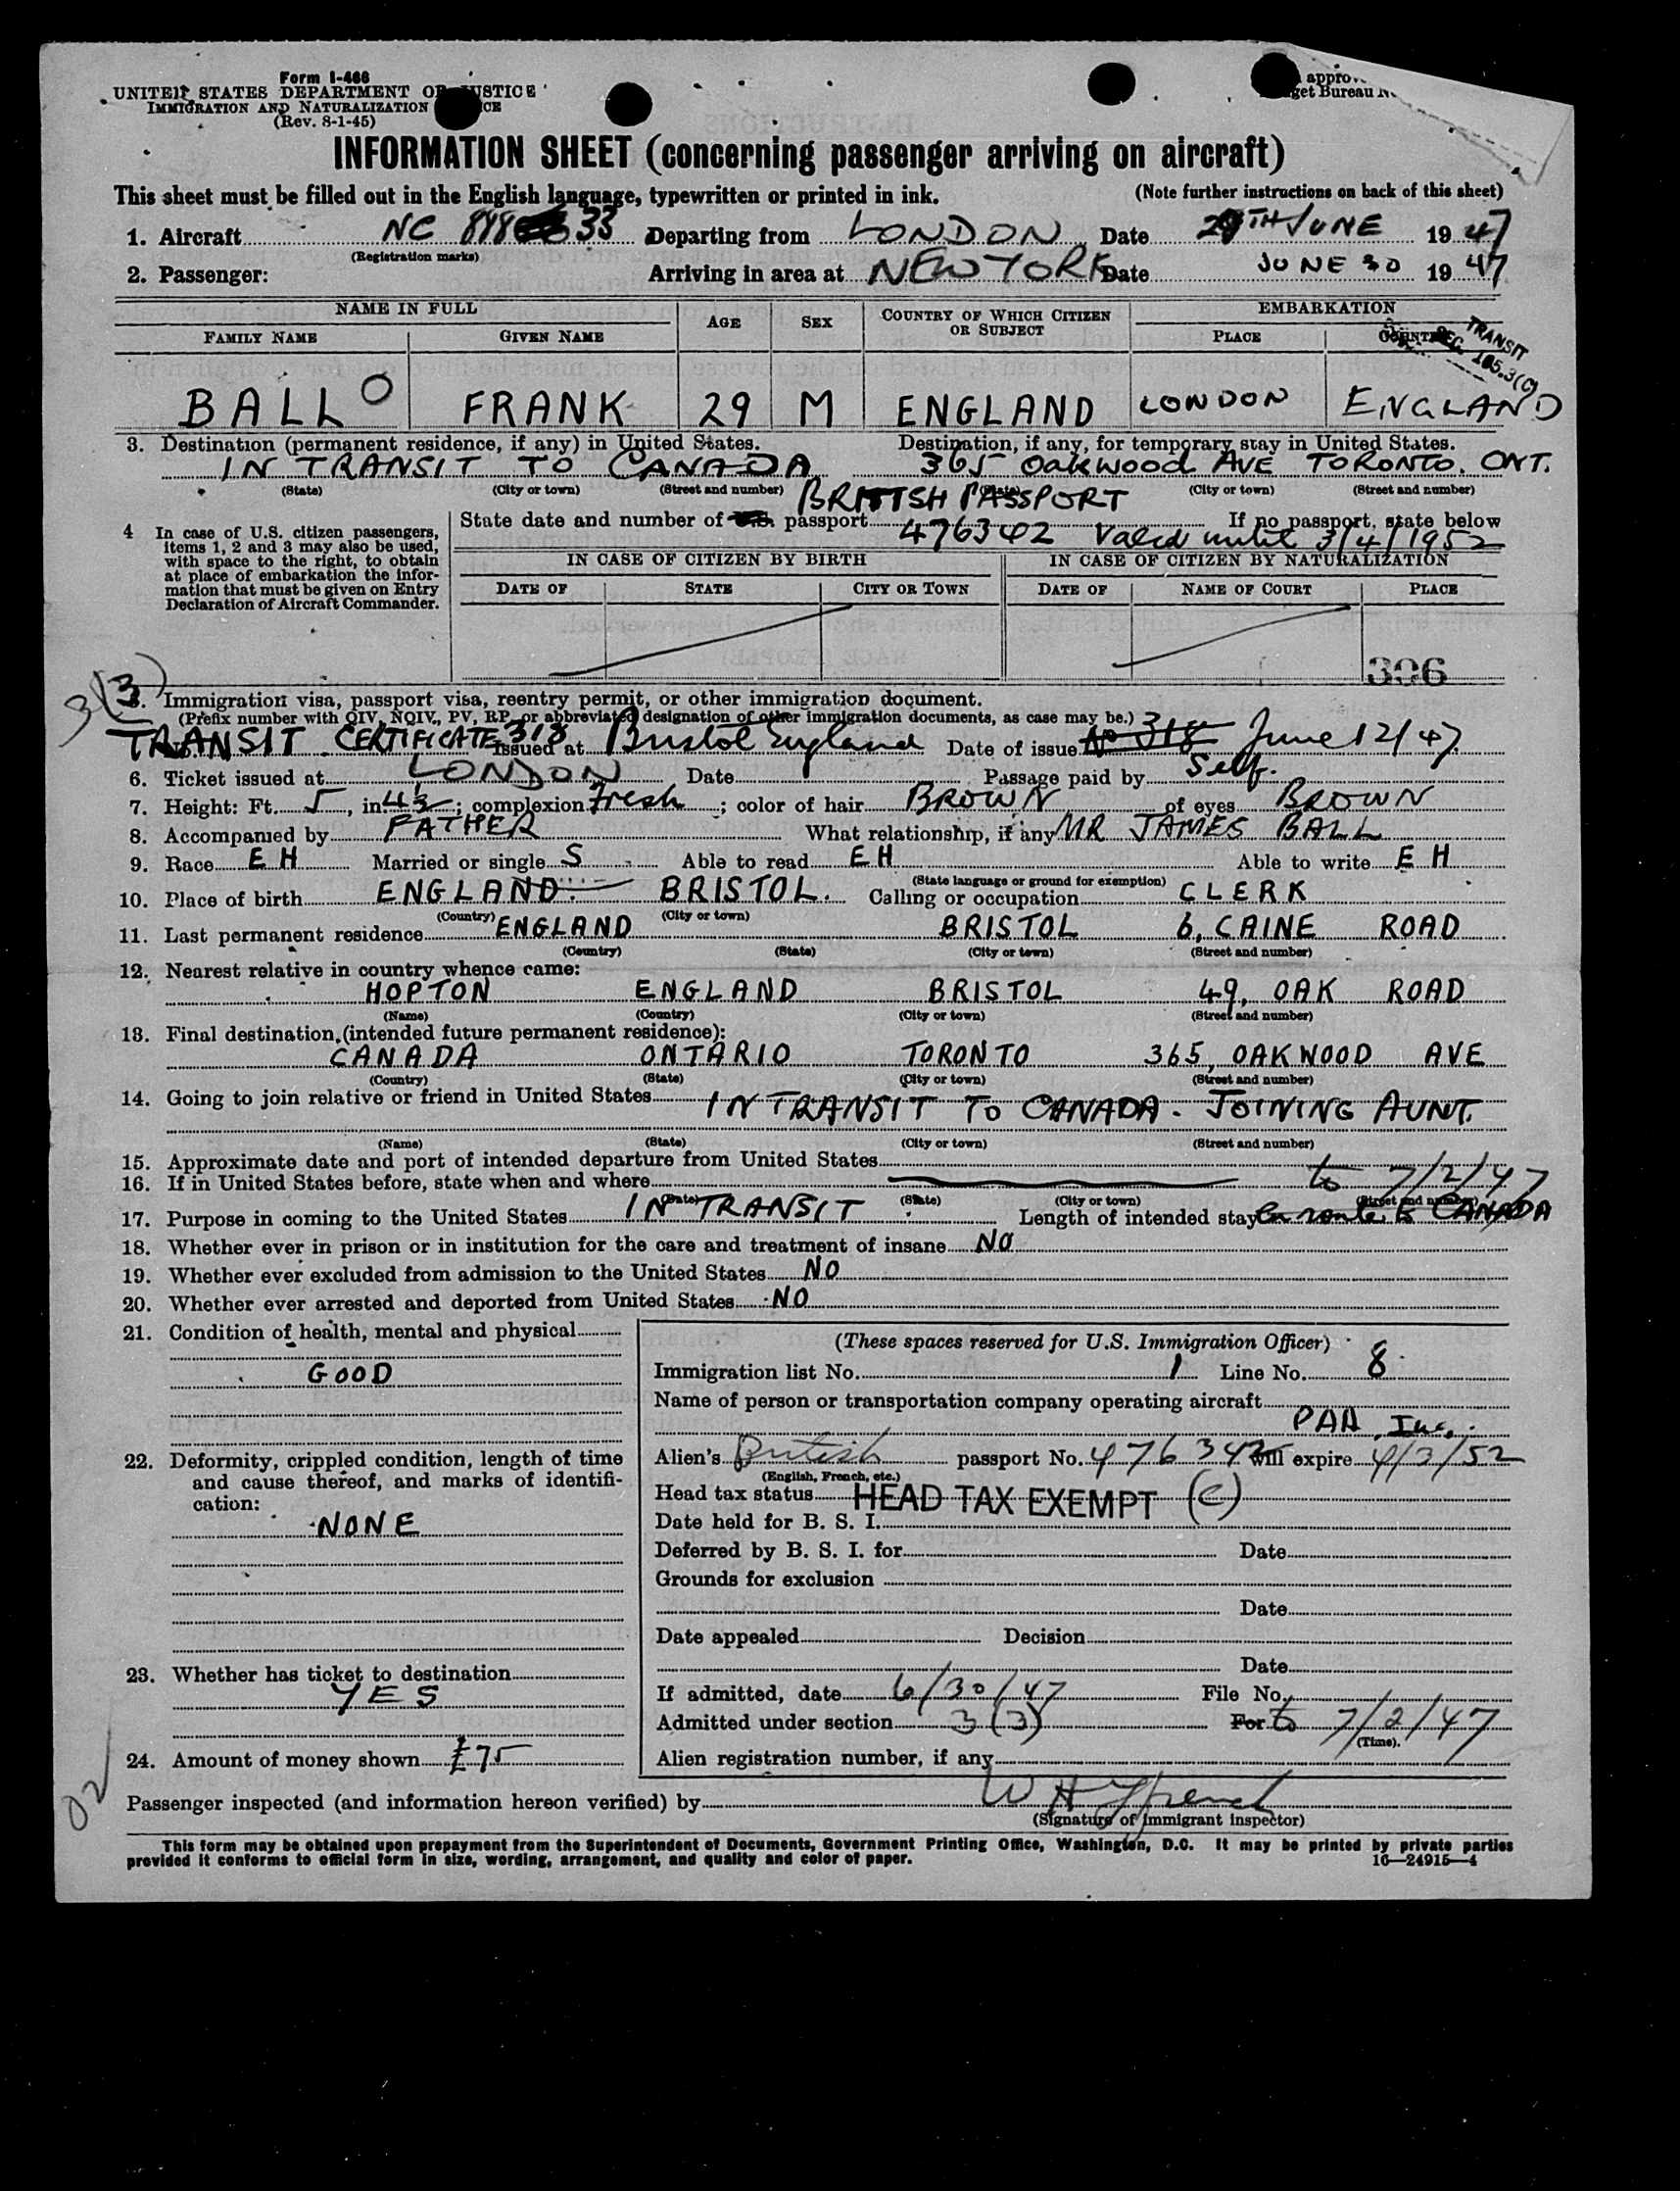 Form I-466
UNITED STATES DEPARTMENT OF JUSTICE
IMMIGRATION AND NATURALIZATION
(Rev. 8-1-45)
INFORMATION SHEET (concerning passenger arriving on aircraft)
This sheet must be filled out in the English language, typewritten or printed in ink. (Note further instructions on back of this sheet)
1. Aircraft NC 888 33 Departing from LONDON Date 29TH JUNE 1947
(Registration marks)
2. Passenger: Arriving in area at NEW YORK Date JUNE 30 1947
NAME IN FULL AGE SEX COUNTRY OF WHICH CITIZEN OR SUBJECT EMBARKATION
FAMILY NAME GIVEN NAME PLACE COUNTRY
TRANSIT
SEC. 105.3(C)
BALL O FRANK 29 M ENGLAND LONDON ENGLAND
3. Destination (permanent residence, if any) in United States. Destination, if any, for temporary stay in United States.
IN TRANSIT TO CANADA 365 Oakwood AVE TORONTO. ONT.
(State) (City or town) (Street and number) (State) (City or town) (Street and number)
BRITISH PASSPORT
4 In case of U.S. citizen passengers, items 1, 2 and 3 may also be used, with space to the right, to obtain at place of embarkation the information that must be given on Entry Declaration of Aircraft Commander.
State date and number of U.S. passport 476342 Valid until 3/4/1952 If no passport, state below
IN CASE OF CITIZEN BY BIRTH IN CASE OF CITIZEN BY NATURALIZATION
DATE OF STATE CITY OR TOWN DATE OF NAME OF COURT PLACE
396
3(3)
5. Immigration visa, passport visa, reentry permit, or other immigration document.
(Prefix number with QIV, NQIV, PV, RP, or abbreviated designation of other immigration documents, as case may be.)
TRANSIT CERTIFICATE 318 Issued at Bristol England Date of issue No 318 June 12/47
6. Ticket issued at LONDON Date Passage paid by Self.
7. Height: Ft. 5, in. 4½; complexion Fresh; color of hair BROWN of eyes BROWN
8. Accompanied by FATHER What relationship, if any MR JAMES BALL
9. Race E H Married or single S Able to read E H Able to write E H
(State language or ground for exemption)
10. Place of birth ENGLAND. BRISTOL. Calling or occupation CLERK
(Country) (City or town)
11. Last permanent residence ENGLAND BRISTOL 6, CAINE ROAD
(Country) (State) (City or town) (Street and number)
12. Nearest relative in country whence came:
HOPTON ENGLAND BRISTOL 49, OAK ROAD
(Name) (Country) (City or town) (Street and number)
13. Final destination (intended future permanent residence):
CANADA ONTARIO TORONTO 365, OAKWOOD AVE
(Country) (State) (City or town) (Street and number)
14. Going to join relative or friend in United States IN TRANSIT TO CANADA - JOINING AUNT.
(Name) (State) (City or town) (Street and number)
15. Approximate date and port of intended departure from United States to 7/2/47
16. If in United States before, state when and where
(Date) (State) (City or town) (Street and number)
17. Purpose in coming to the United States IN TRANSIT Length of intended stay En route to CANADA
18. Whether ever in prison or in institution for the care and treatment of insane NO
19. Whether ever excluded from admission to the United States NO
20. Whether ever arrested and deported from United States NO
21. Condition of health, mental and physical
GOOD
22. Deformity, crippled condition, length of time and cause thereof, and marks of identification:
NONE
23. Whether has ticket to destination
YES
24. Amount of money shown £75
(These spaces reserved for U.S. Immigration Officer)
Immigration list No. 1 Line No. 8
Name of person or transportation company operating aircraft
PAA, Inc.
Alien's British passport No. 476342 Will expire 4/3/52
(English, French, etc.)
Head tax status HEAD TAX EXEMPT (C)
Date held for B. S. I.
Deferred by B. S. I. for Date
Grounds for exclusion
Date
Date appealed Decision
Date
If admitted, date 6/30/47 File No.
Admitted under section 3(3) For to 7/2/47
(Time).
Alien registration number, if any
02
Passenger inspected (and information hereon verified) by
(Signature of immigrant inspector)
This form may be obtained upon prepayment from the Superintendent of Documents, Government Printing Office, Washington, D.C. It may be printed by private parties
provided it conforms to official form in size, wording, arrangement, and quality and color of paper. 16—24915-4